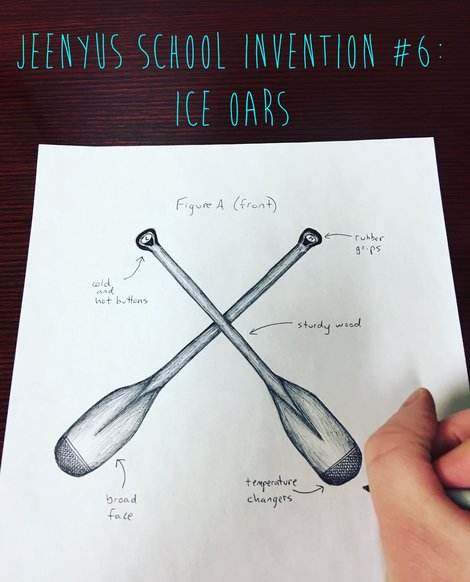 JEENYUS SCHOOL INVENTION #6:
ICE OARS
Figure A (front)
rubber
grips
cold
and
hot buttons
sturdy wood
temperature
changers
broad
face